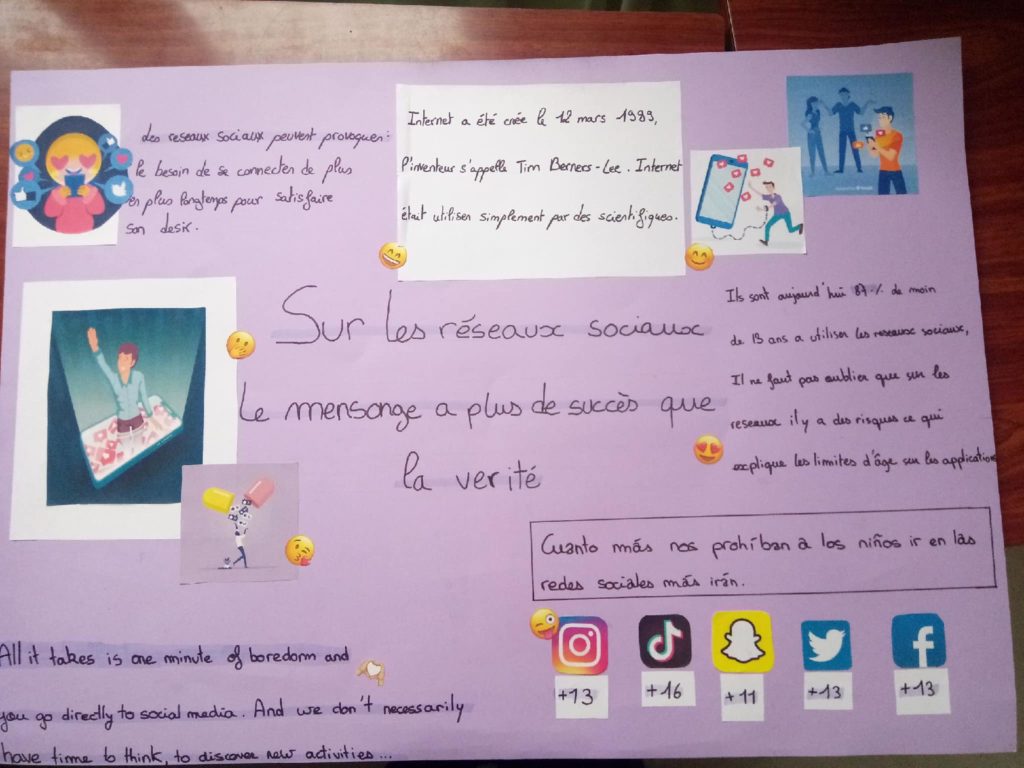 des reseaux sociaux peuvent provoquer:
le besoin de se connecter de plus
en plus longtemps pour satisfaire
son desir.
Internet a été crée le 12 mars 1989,
l'inventeur s'appelle Tim Berners-Lee. Internet
était utiliser simplement par des scientifiques.
Sur les réseaux sociaux
le mensonge a plus de succès que
la verité
Ils sont aujourd'hui 87% de moin
de 13 ans a utiliser les reseaux sociaux,
Il ne faut pas oublier que sur les
reseaux il y a des risques ce qui
explique les limites d'âge sur les applications
Cuanto más nos prohíban à los niños ir en las
redes sociales más irán.
+13
+16
+11
+13
+13
All it takes is one minute of boredom and
you go directly to social media. And we don't necessarily
have time to think, to discover new activities...